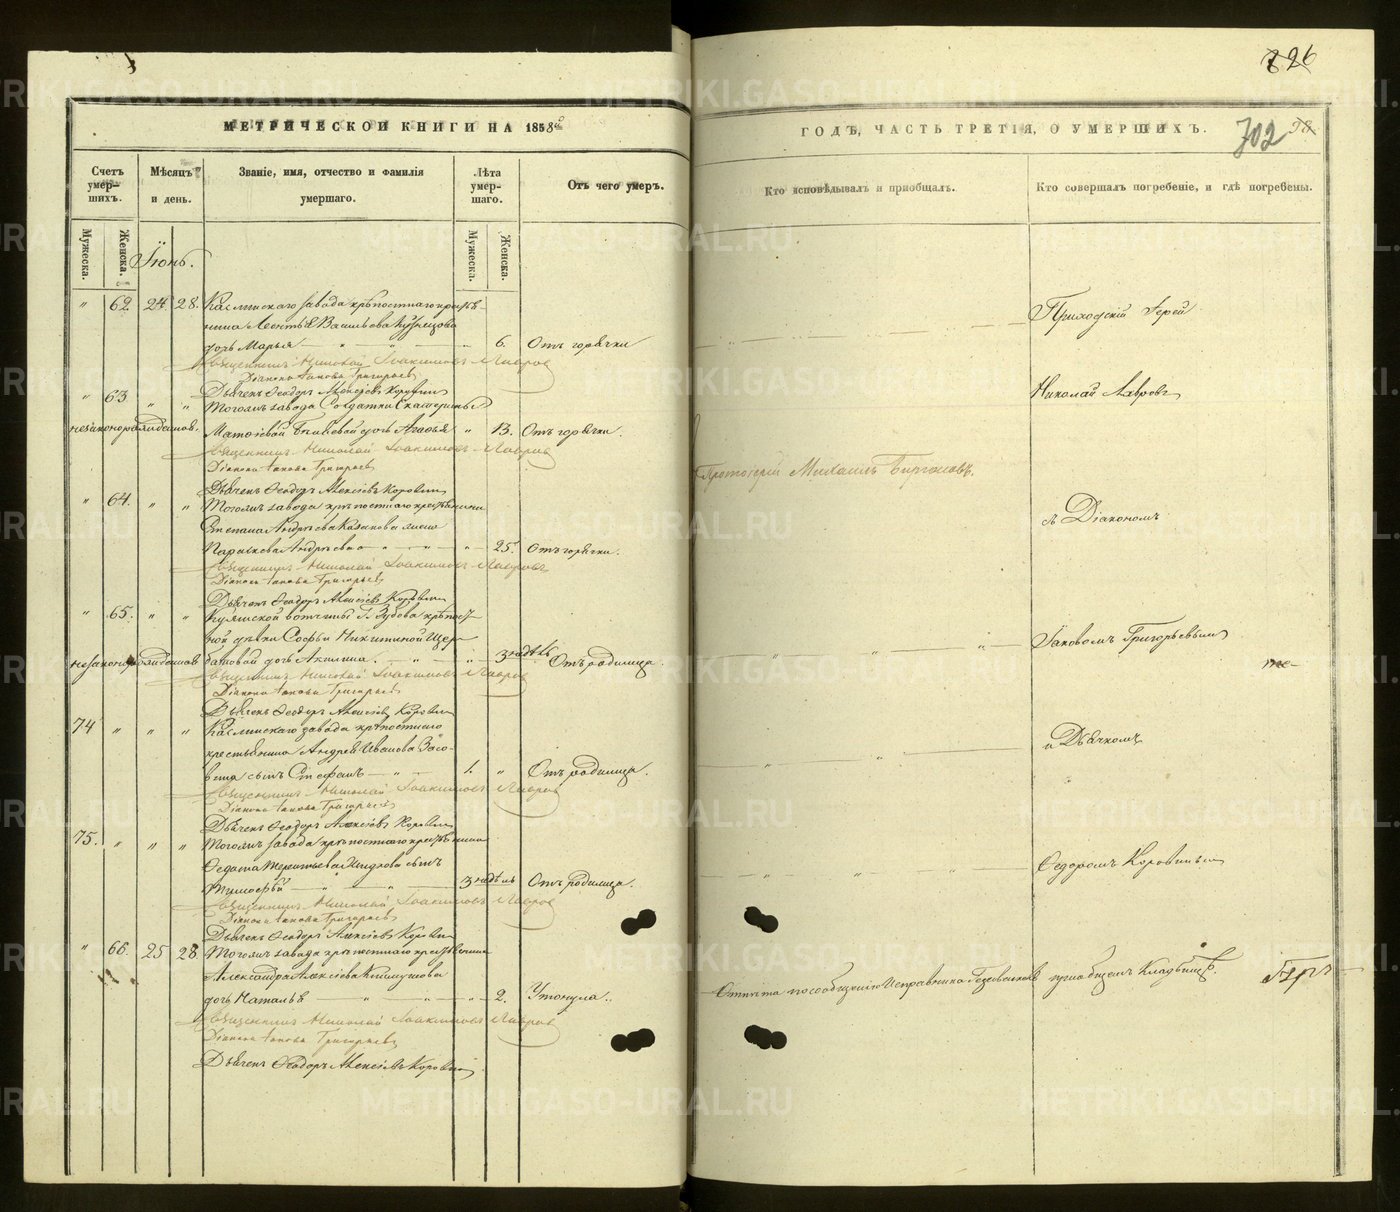 826
МЕТРИЧЕСКОЙ КНИГИ НА 1858й
ГОДЪ, ЧАСТЬ ТРЕТІЯ, О УМЕРШИХЪ.
702
Счетъ умершихъ.
Мѣсяцъ и день.
Званіе, имя, отчество и фамилія умершаго.
Лѣта умершаго.
Отъ чего умеръ.
Кто исповѣдывалъ и пріобщалъ.
Кто совершалъ погребеніе, и гдѣ погребены.
Мужеска.
Женска.
Мужеска.
Женска.
Іюнь.
" 62. 24. 28. Каслинскаго завода крѣпостнаго крестья-
нина Леонтья Васильева Кузнецова
дочь Марья " 6. Отъ горячки
Священникъ Николай Іоакимовъ Лавровъ
Діаконъ Іаковъ Григорьевъ
Дьячекъ Ѳеодоръ Алексѣевъ Коровинъ
" 63 " " Тогожъ завода Солдатки Екатерины
незаконорожденная. Матвѣевой дочь Агафья " 13. Отъ горячки.
Священникъ Николай Іоакимовъ Лавровъ
Діаконъ Іаковъ Григорьевъ
Дьячекъ Ѳеодоръ Алексѣевъ Коровинъ
" 64. " " Тогожъ завода крѣпостнаго крестьянина
Степана Андрѣева Казакова жена
Параскева Андрѣева " 25. Отъ горячки.
Священникъ Николай Іоакимовъ Лавровъ
Діаконъ Іаковъ Григорьевъ
Дьячекъ Ѳеодоръ Алексѣевъ Коровинъ
" 65. " " вотчины Г. Зубова крѣпост-
ной дѣвки Софьи Никитиной Щер-
баковой дочь Акилина. " 3 недѣль Отъ родимца.
Священникъ Николай Іоакимовъ Лавровъ
Діаконъ Іаковъ Григорьевъ
Дьячекъ Ѳеодоръ Алексѣевъ Коровинъ
74 " " " Каслинскаго завода крѣпостнаго
крестьянина Андрея Иванова
сынъ Стефанъ 1. " Отъ родимца.
Священникъ Николай Іоакимовъ Лавровъ
Діаконъ Іаковъ Григорьевъ
Дьячекъ Ѳеодоръ Алексѣевъ Коровинъ
75. " " " Тогожъ завода крѣпостнаго крестьянина
Терентьева сынъ
Тимоѳѣй 3 недѣль Отъ родимца.
Священникъ Николай Іоакимовъ Лавровъ
Діаконъ Іаковъ Григорьевъ
Дьячекъ Ѳеодоръ Алексѣевъ Коровинъ
" 66. 25 28 Тогожъ завода крѣпостнаго крестьянина
Александра Алексѣева
дочь Наталья " 2. Утонула.
Священникъ Николай Іоакимовъ Лавровъ
Діаконъ Іаковъ Григорьевъ
Дьячекъ Ѳеодоръ Алексѣевъ Коровинъ
Протоіерей Михаилъ
Приходскій Іерей
Николай Лавровъ
съ Діакономъ
Іаковомъ Григорьевымъ
и Дьячкомъ
Ѳедоромъ Коровинымъ
по сообщенію Исправника на общемъ Кладбищѣ.
METRIKI.GASO-URAL.RU